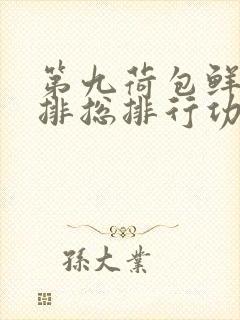 第九荷包鲜
排捴排行功
孫大業